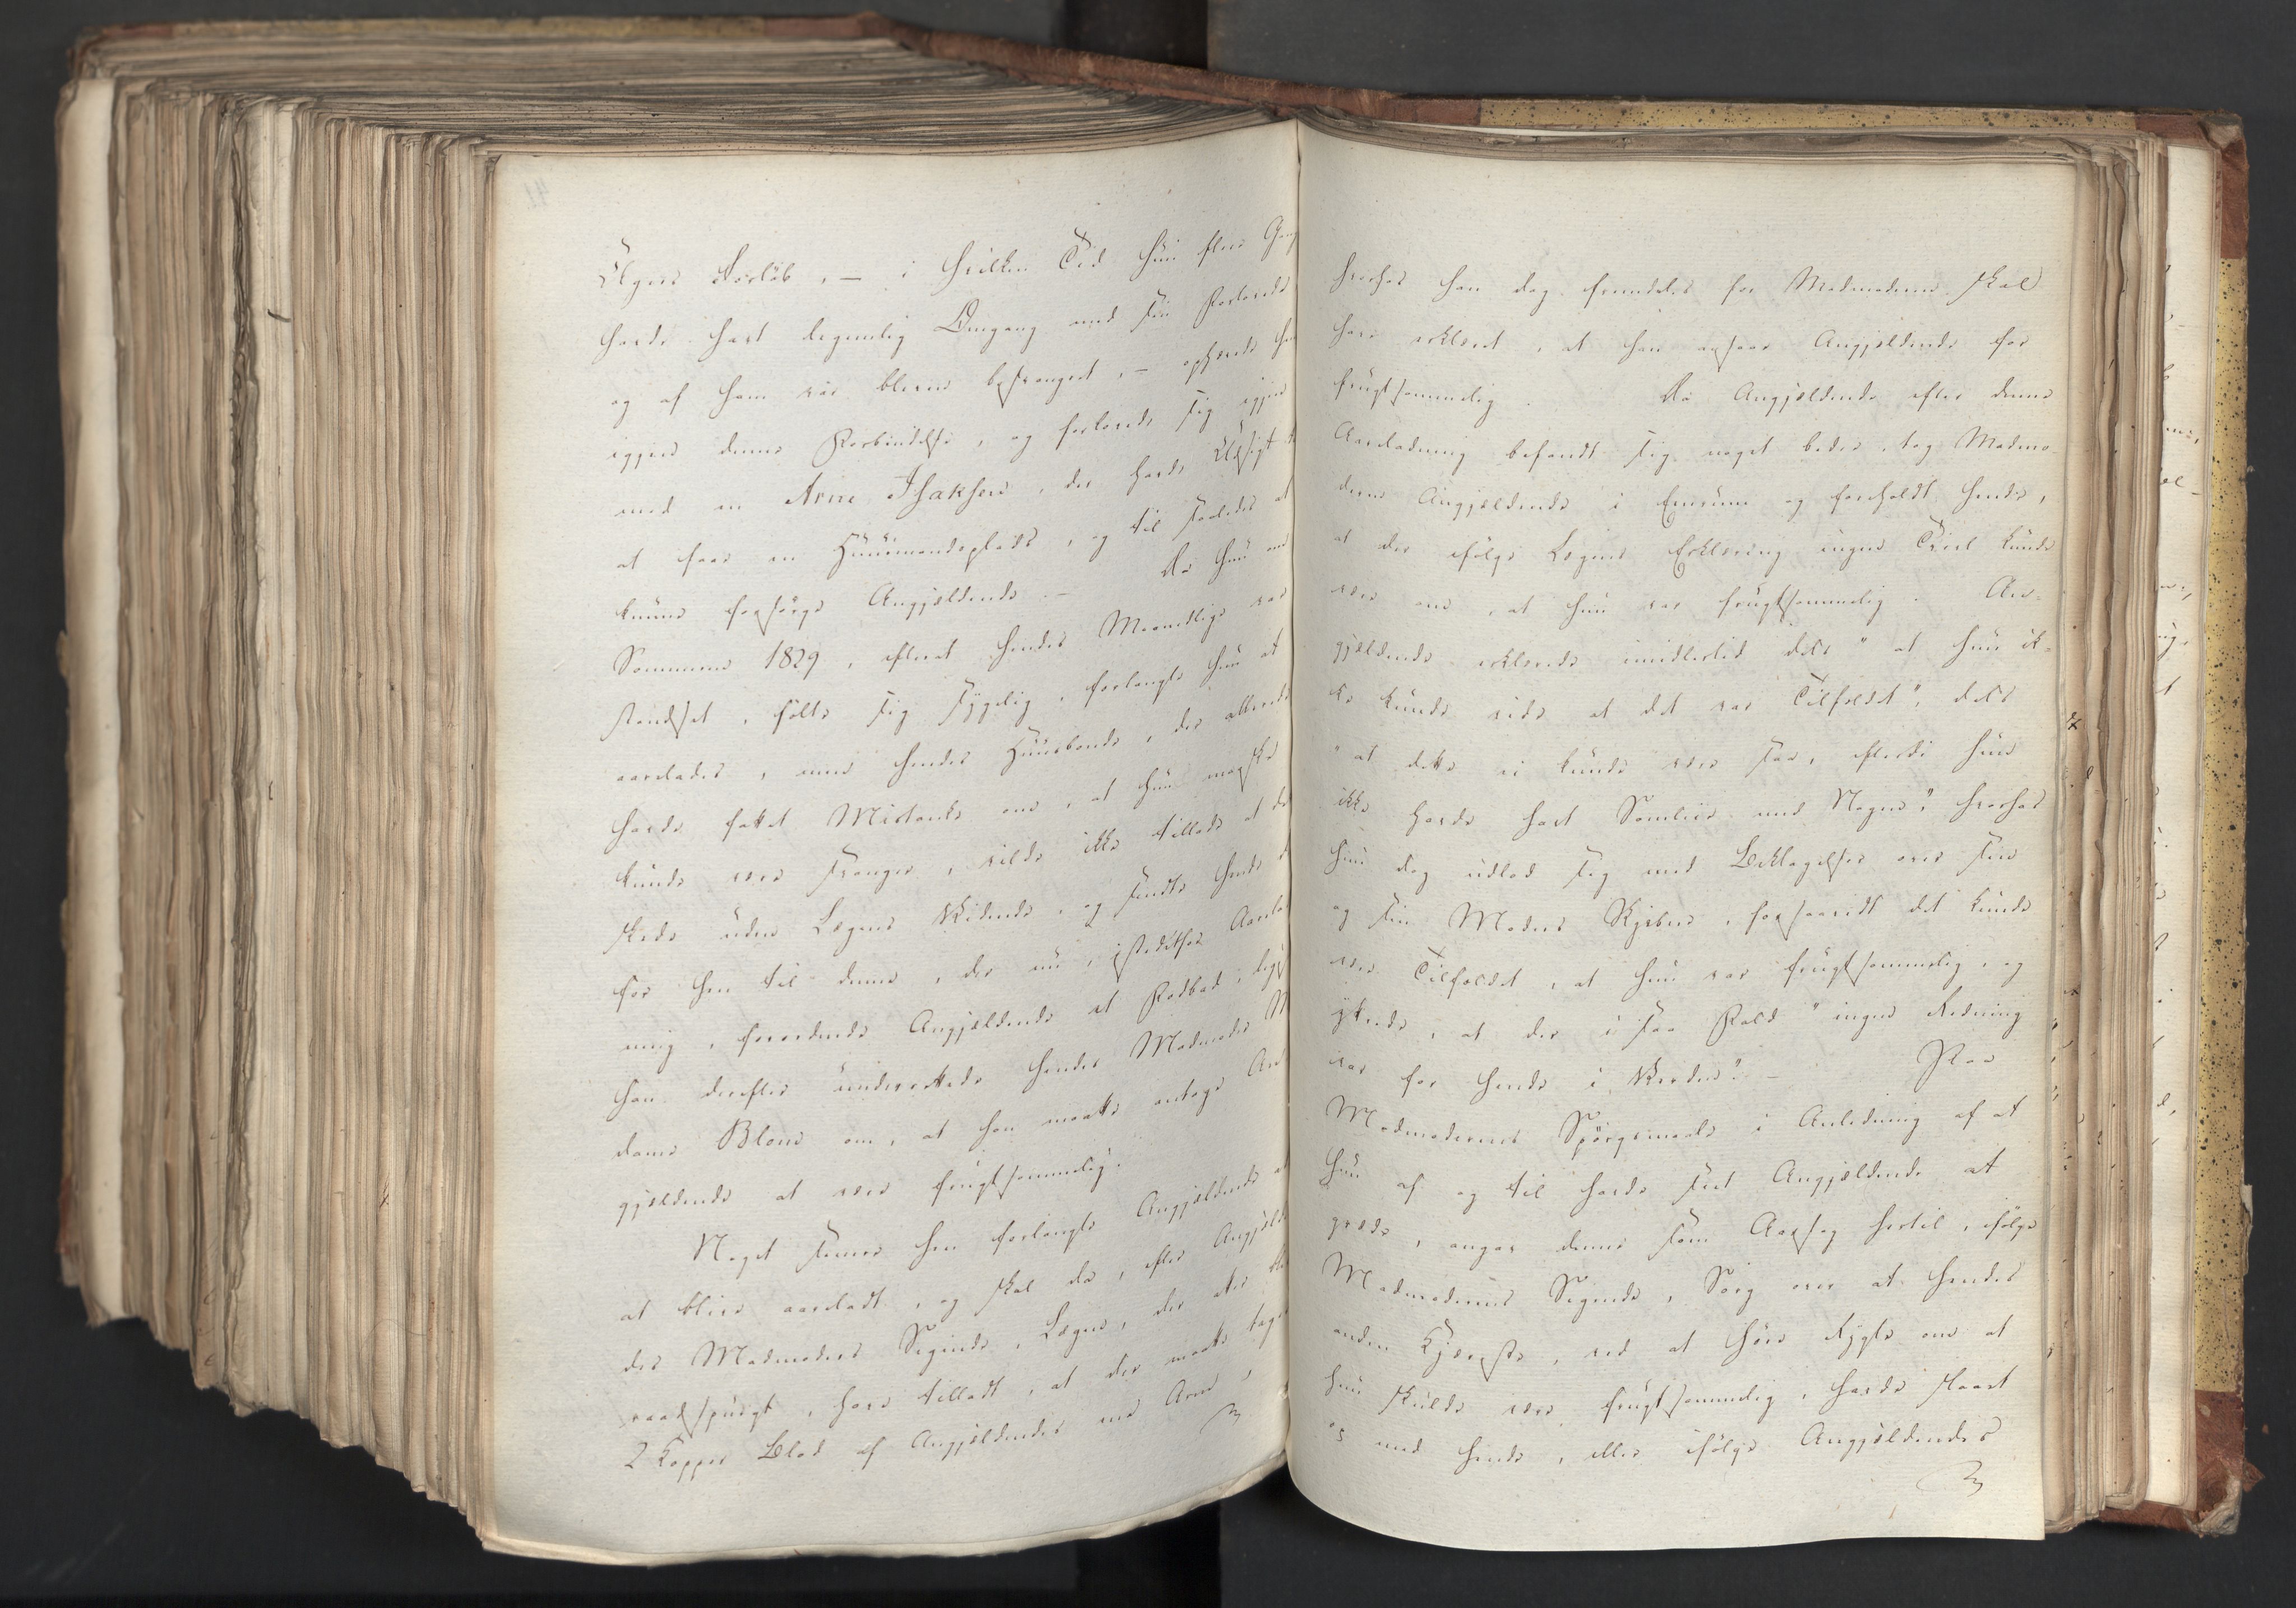 Ugers Forløb, – i hvilken Tid hun flere Gang
havde havt legemlig Omgang med sin Forlovede
og af ham var bleven besvangret, – ophævede hun
igjen denne Forbindelse, og forlovede sig igjen
med en Arne Isaksen, der havde Udsigt til
at faae en Huusmandsplads, og til saaledes at
kunne forsørge Angjældende. – Da hun om
Sommeren 1829, efterat hendes Maanedlige var
standset, følte sig sygelig, forlangte hun at
aarelades, men hendes Huusbonde, der allerede
havde fattet Mistanke om, at hun maaskee
kunde være svanger, vilde ikke tillade at det
skede uden Lægens Vidende, og sendte hende der-
for hen til denne, der nu, istedetfor Aarelad-
ning, forordnede Angjældende et Fodbad, ligesom
han derefter underrettede hendes Madmoder Ma-
dame Blom om, at han maatte antage An-
gjældende at være frugtsommelig.
Noget senere hen forlangte Angjældende at
at blive aareladt, og skal da, efter Angjælden-
des Madmoders Sigende, Lægen, der atter blev
raadspurgt, have tilladt, at der maatte tages
2 Kopper Blod af Angjældendes ene Arm,
hvorhos han dog fremdeles for Madmoderen skal
have erklæret, at han ansaae Angjældende for
frugtsommelig. Da Angjældende efter denne
Aareladning befandt sig noget bedre, tog Madmo-
deren Angjældende i Eenrum og foreholdt hende,
at der ifølge Lægens Erklæring ingen Tvivl kunde
være om, at hun var frugtsommelig. An-
gjældende erklærede imidlertid deels "at hun ik-
ke kunde vide at det var Tilfældet", deels
"at dette ei kunde være saa, efterdi hun
ikke havde havt Samleie med Nogen", hvorhos
hun dog udlod sig med Beklagelser over sin
og sin Moders Skjæbne, forsaavidt det kunde
være Tilfældet, at hun var frugtsommelig, og
yttrede, at der i saa Fald "ingen Redning
var for hende i Verden". – Paa
Madmoderens Spørgsmaale i Anledning af at
hun af og til havde seet Angjældende at
græde, angav denne som Aarsag hertil, ifølge
Madmoderens Sigende, Sorg over at hendes
anden Kjæreste, ved at høre Rygte om at
hun skulde være frugtsommelig, havde slaaet
op med hende, eller ifølge Angjældendes